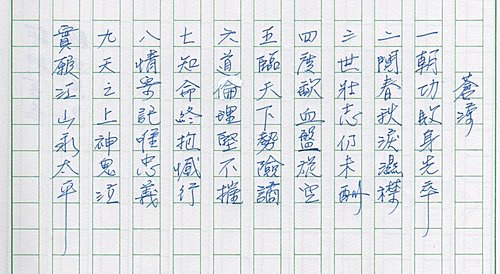 蒼濤
一朝功敗身先卒
二閱春秋淚濕襟
三世壯志仍未酬
四度歃血盤旋空
五臨天下勢險譎
六道倫理堅不撓
七知命終抱憾行
八情案記唯忠義
九天之上神鬼泣
實願江山永太平